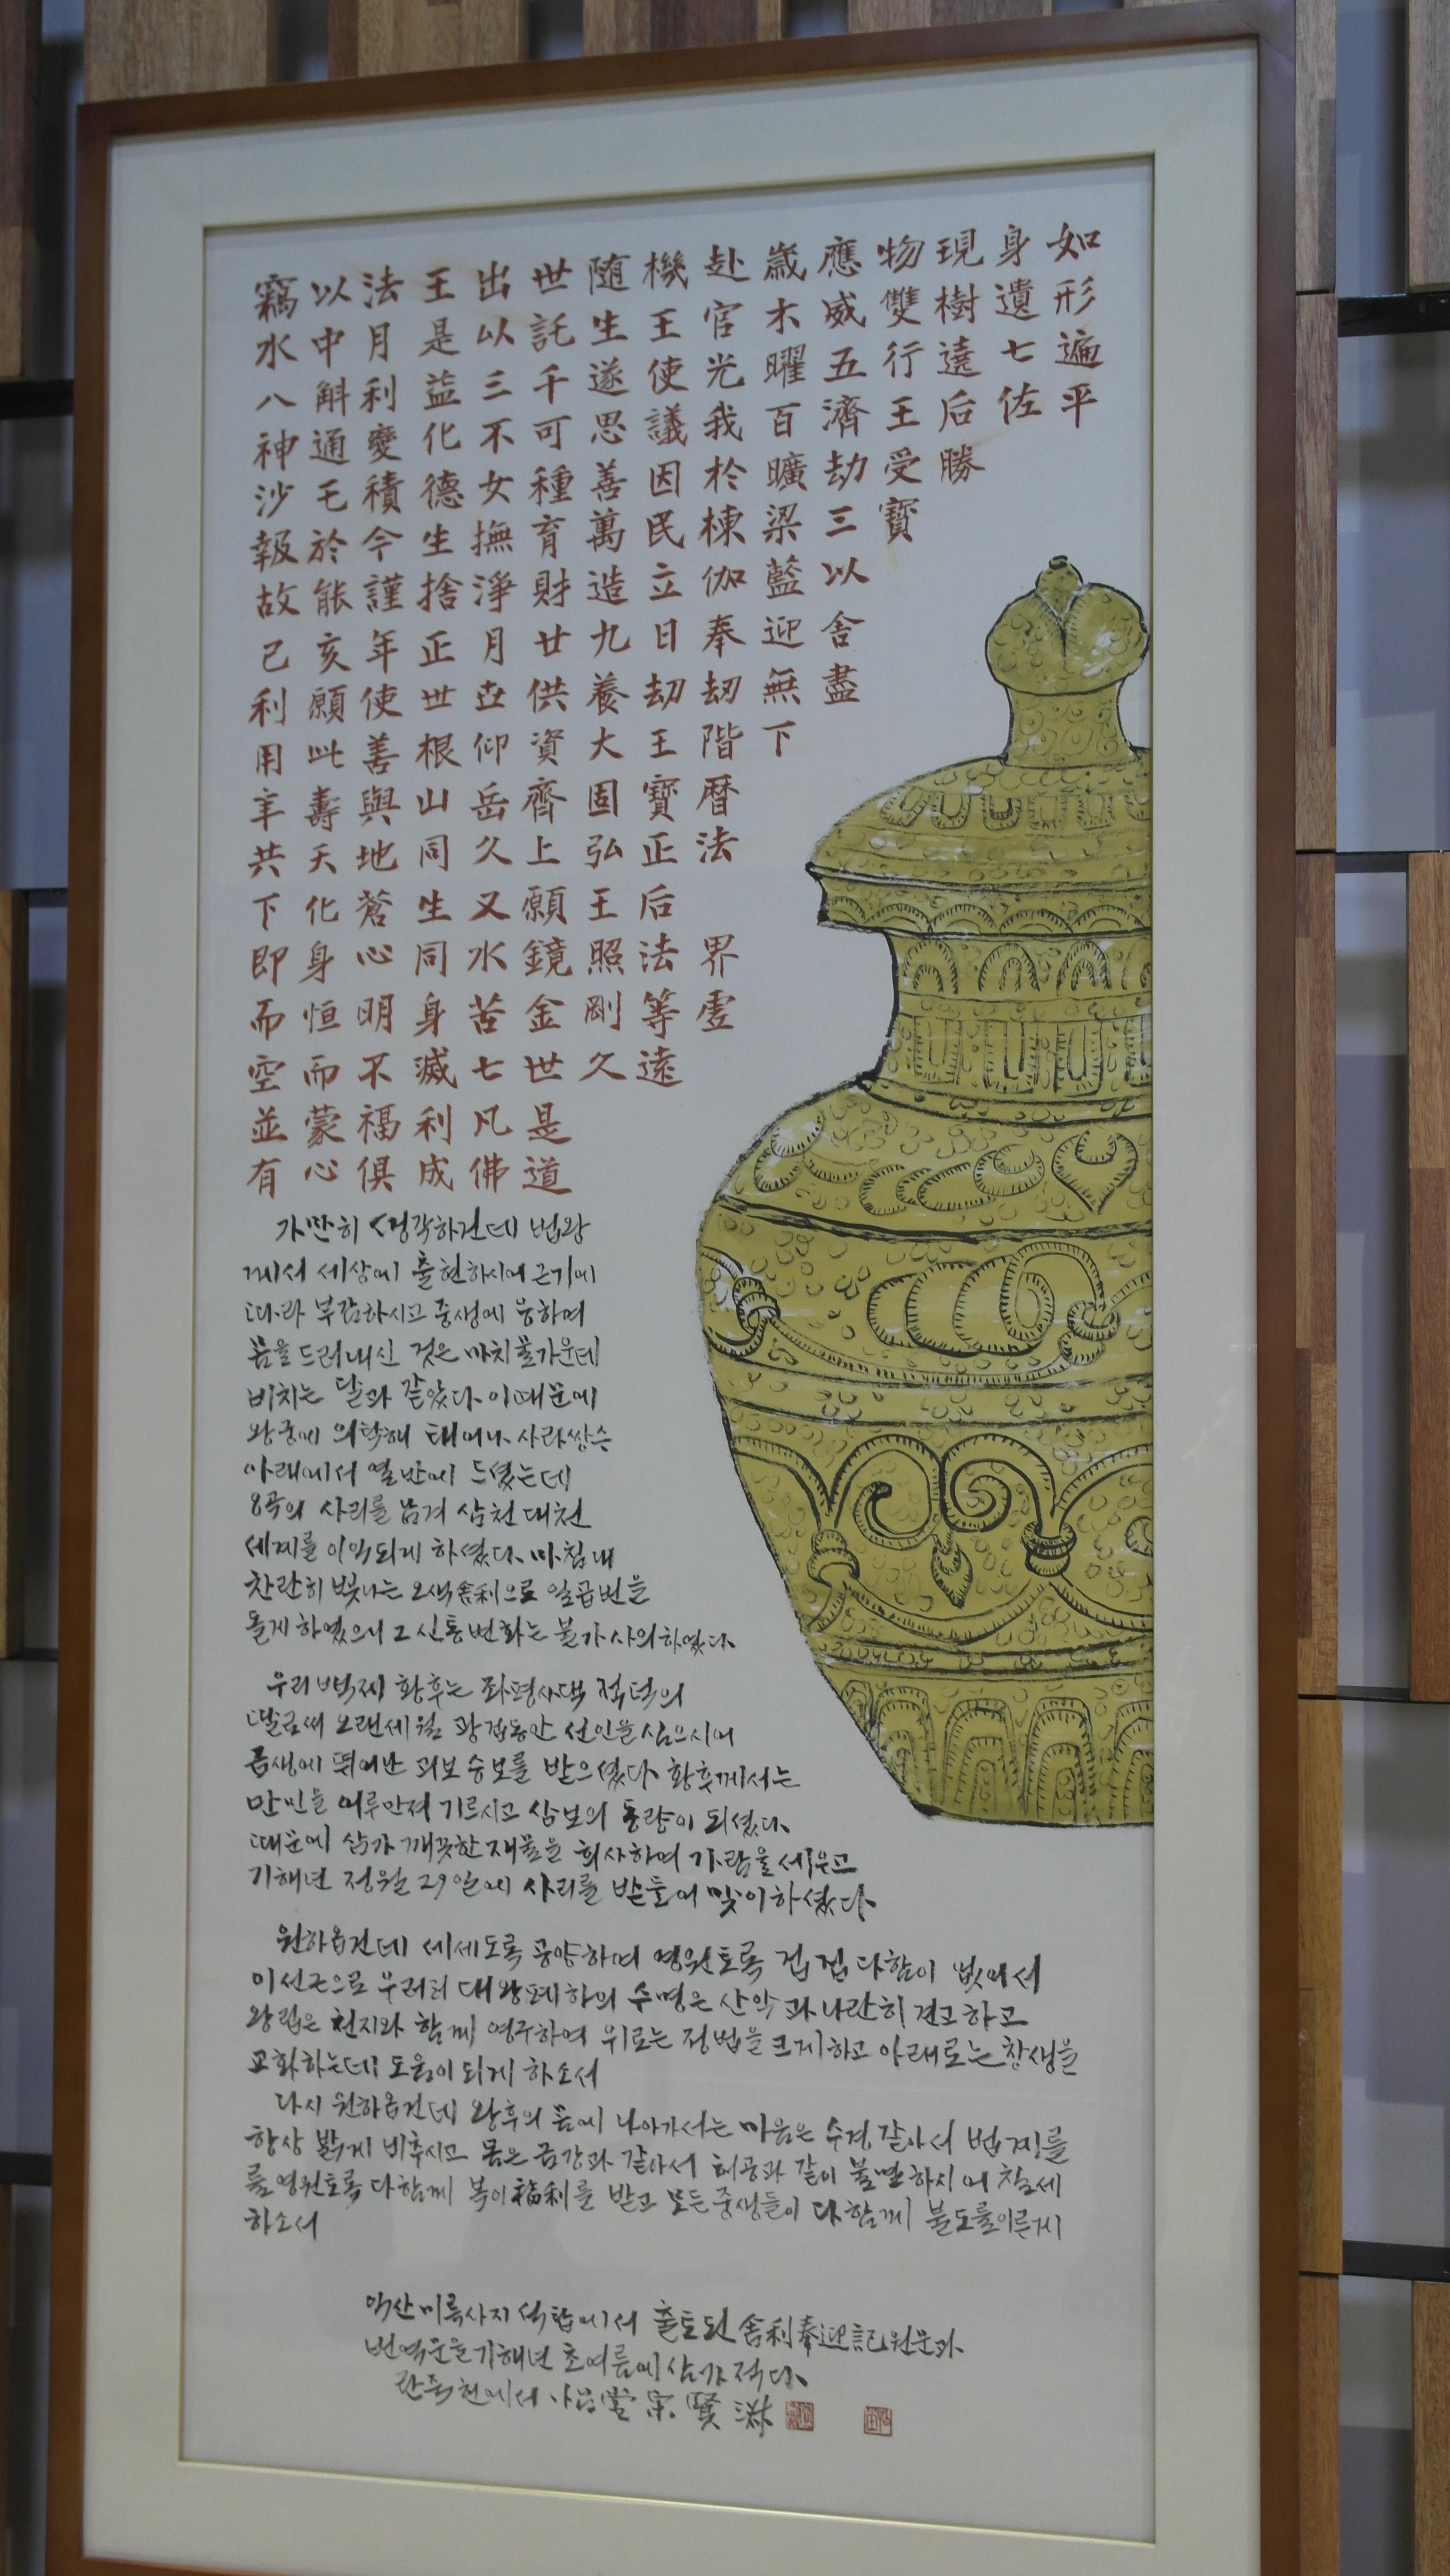 竊以法王出世随機赴歲應物現身如
水中月是以託生王宮木威雙樹遺形
八斛利益三千遂使光曜五行遶七遍
神通變化不可思議我百濟王后佐平
沙乇積德女種善因於曠劫受勝
報於今生撫育萬民棟梁三寶
故能謹捨淨財造立伽藍以
己亥年正月廿九日奉迎舍
利願使世世供養劫劫無盡
用此善根仰資大王階下
年壽與山岳齊固寶曆
共天地同久上弘正法
下化蒼生又願王后
即身心同水鏡照法界
而恒明身苦金剛等虛
空而不滅七世久遠
並蒙福利凡是
有心俱成佛道
가만히 생각하건데 법왕
께서 세상에 출현하시어 근기에
따라 부감하시고 중생에 응하며
몸을 드러내신 것은 마치 물가운데
비치는 달과 같았다 이때문에
왕궁에 의탁해 태어나 사라쌍수
아래에서 열반에 드셨는데
8곡의 사리를 남겨 삼천대천
세계를 이익되게 하셨다 마침내
찬란히 빛나는 오색舍利으로 일곱번을
돌게 하였으니 그 신통변화는 불가사의하였다
우리 백제 황후는 좌평사택 적덕의
딸로써 오랜세월 광겁동안 선인을 심으시어
금생에 뛰어난 과보 승보를 받으셨다 황후께서는
만민을 어루만져 기르시고 삼보의 동량이 되셨다
때문에 삼가 깨끗한 재물을 희사하여 가람을 세우고
기해년 정월 29일에 사리를 받들어 맞이하셨다
원하옵건데 세세토록 공양하며 영원토록 겁겁 다함이 없어서
이선근으로 우러러 대왕폐하의 수명은 산악과 나란히 견고하고
왕립은 천지와 함께 영구하여 위로는 정법을 크게하고 아래로는 창생을
교화하는데 도움이 되게 하소서
다시 원하옵건데 왕후의 몸에 나아가서는 마음은 수경같아서 법계를
항상 밝게 비추시고 몸은 금강과 같아서 허공과 같이 불멸하시어 칠세
를 영원토록 다함께 복이 福利를 받고 모든 중생들이 다함께 불도를 이룬게
하소서
익산 미륵사지 석탑에서 출토된 舍利奉迎記 원문과
번역문을 기해년 초여름에 삼가 적다
란죽헌에서 宋賢淑